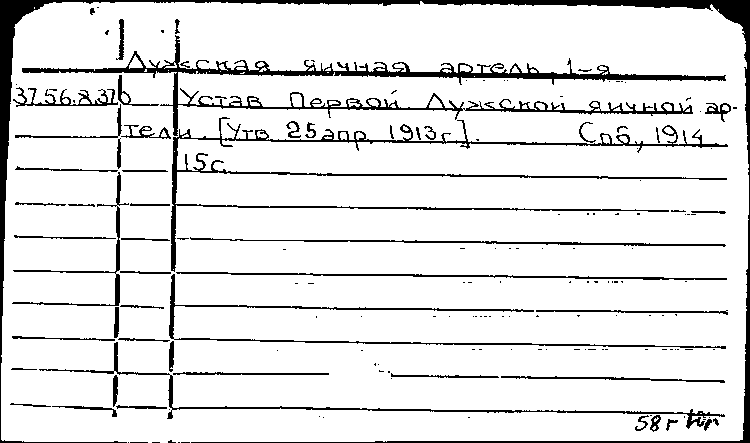 Лужская яичная артель, 1-я
37.56.8.370 Устав Первой Лужской яичной ар-
тели. [Утв. 25 апр. 1913 г.]. Спб., 1914.
15 с.
58 г